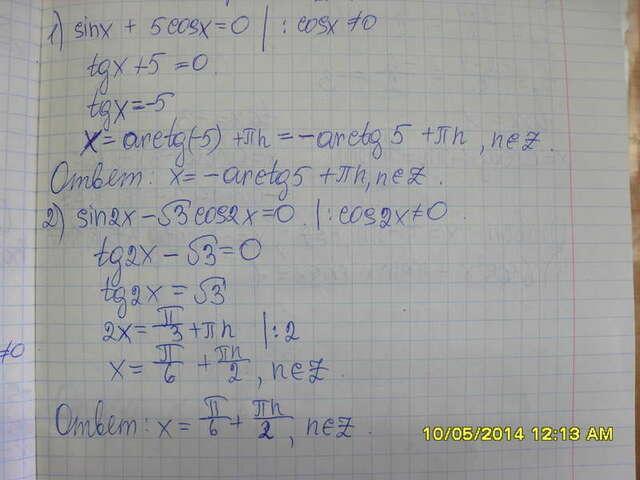 1) sinx + 5cosx = 0 | : cosx ≠ 0
tgx + 5 = 0.
tgx = -5
x = arctg(-5) + πn = -arctg 5 + πn, n∈Z.
Ответ: x = -arctg5 + πn, n∈Z.
2) sin2x - √3 cos2x = 0. | : cos2x ≠ 0.
tg2x - √3 = 0
tg2x = √3
2x = π/3 + πn | : 2
≠0
x = π/6 + πn/2, n∈Z.
Ответ: x = π/6 + πn/2, n∈Z.
10/05/2014 12:13 AM